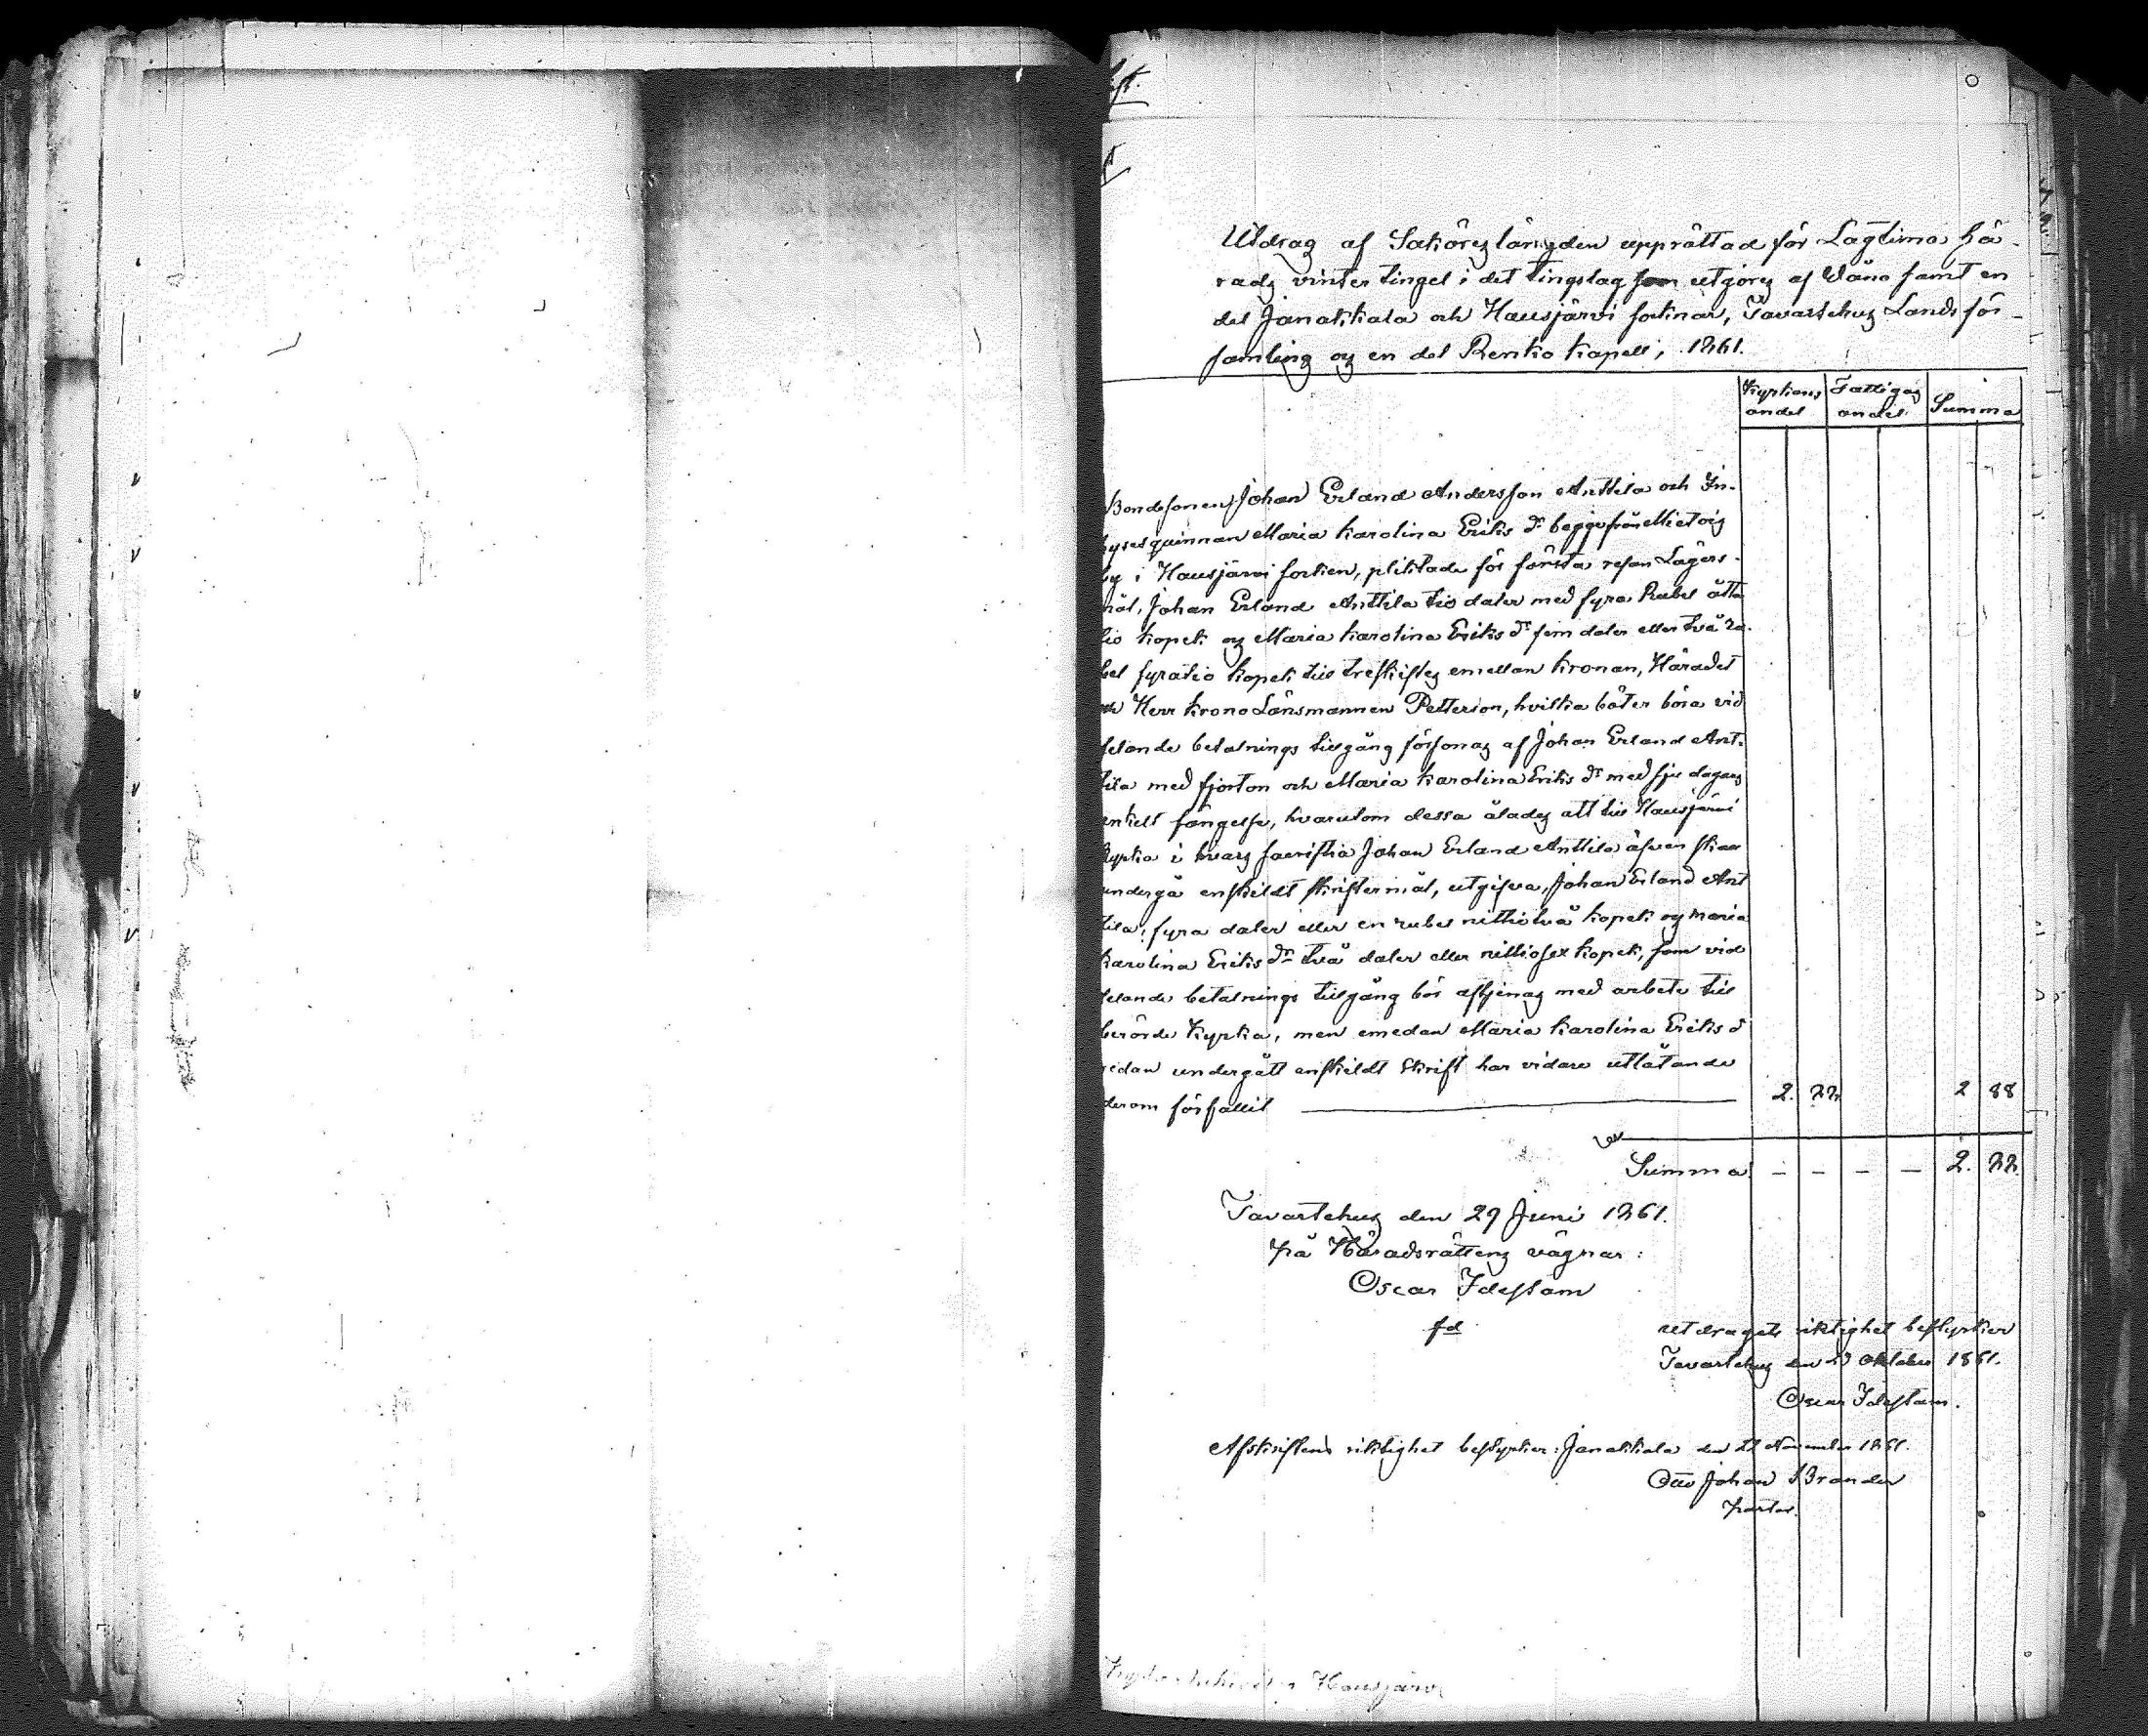 Utdrag af Saköreslängden upprättad för Lagtima hä-
rads vinter tinget i det tingslag som utgöres af Wånå samt en
del Janakkala och Hausjärvi socknar, Tavastehus Lands för-
samling og en del Renko kapell, 1861.
Kyrkans andel Fattigas andel Summa
Bondesonen Johan Erland Andersson Anttila och In-
hysesquinnan Maria Karolina Eriks dr begge från
by i Hausjärvi socken, pliktade för första resan Lägers-
mål, Johan Erland Anttila tio daler med fyra Rubel åtta
tio kopek og Maria Karolina Eriks dr fem daler eller två ru-
bel fyratio kopek till treskiftes emellan Kronan, Häradet
och Herr Krono Länsmannen Petterson, hvilka böter böra vid
felande betalnings tillgång försonas af Johan Erland Ant-
tila med fjorton och Maria Karolina Eriks dr med sju dagars
enkelt fängelse, hvarutom dessa ålades att till Hausjärvi
Kyrka i hvars sacristia Johan Erland Anttila äfven skall
undergå enskildt skriftermål, utgifva, Johan Erland Ant
tila; fyra daler eller en rubel nittiotvå kopek og Maria
Karolina Eriks dr två daler eller nittiosex kopek, som vid
felande betalnings tillgång bör aftjenas med arbete till
berörde Kyrka, men emedan Maria Karolina Eriks d
redan undergått enskildt Skrift har vidare utlåtande
derom förfallit 2. 88 2 88
Summa — — — — 2. 88.
Tavastehus den 29 Juni 1861.
På Häradsrättens vägnar:
Oscar Idestam
fd
utdragets riktighet bestyrker
Tavastehus den Oktober 1861.
Oscar Idestam.
Afskriftens riktighet bestyrker: Janakkala den 22 November 1861.
Otto Johan Brander
Hausjärvi